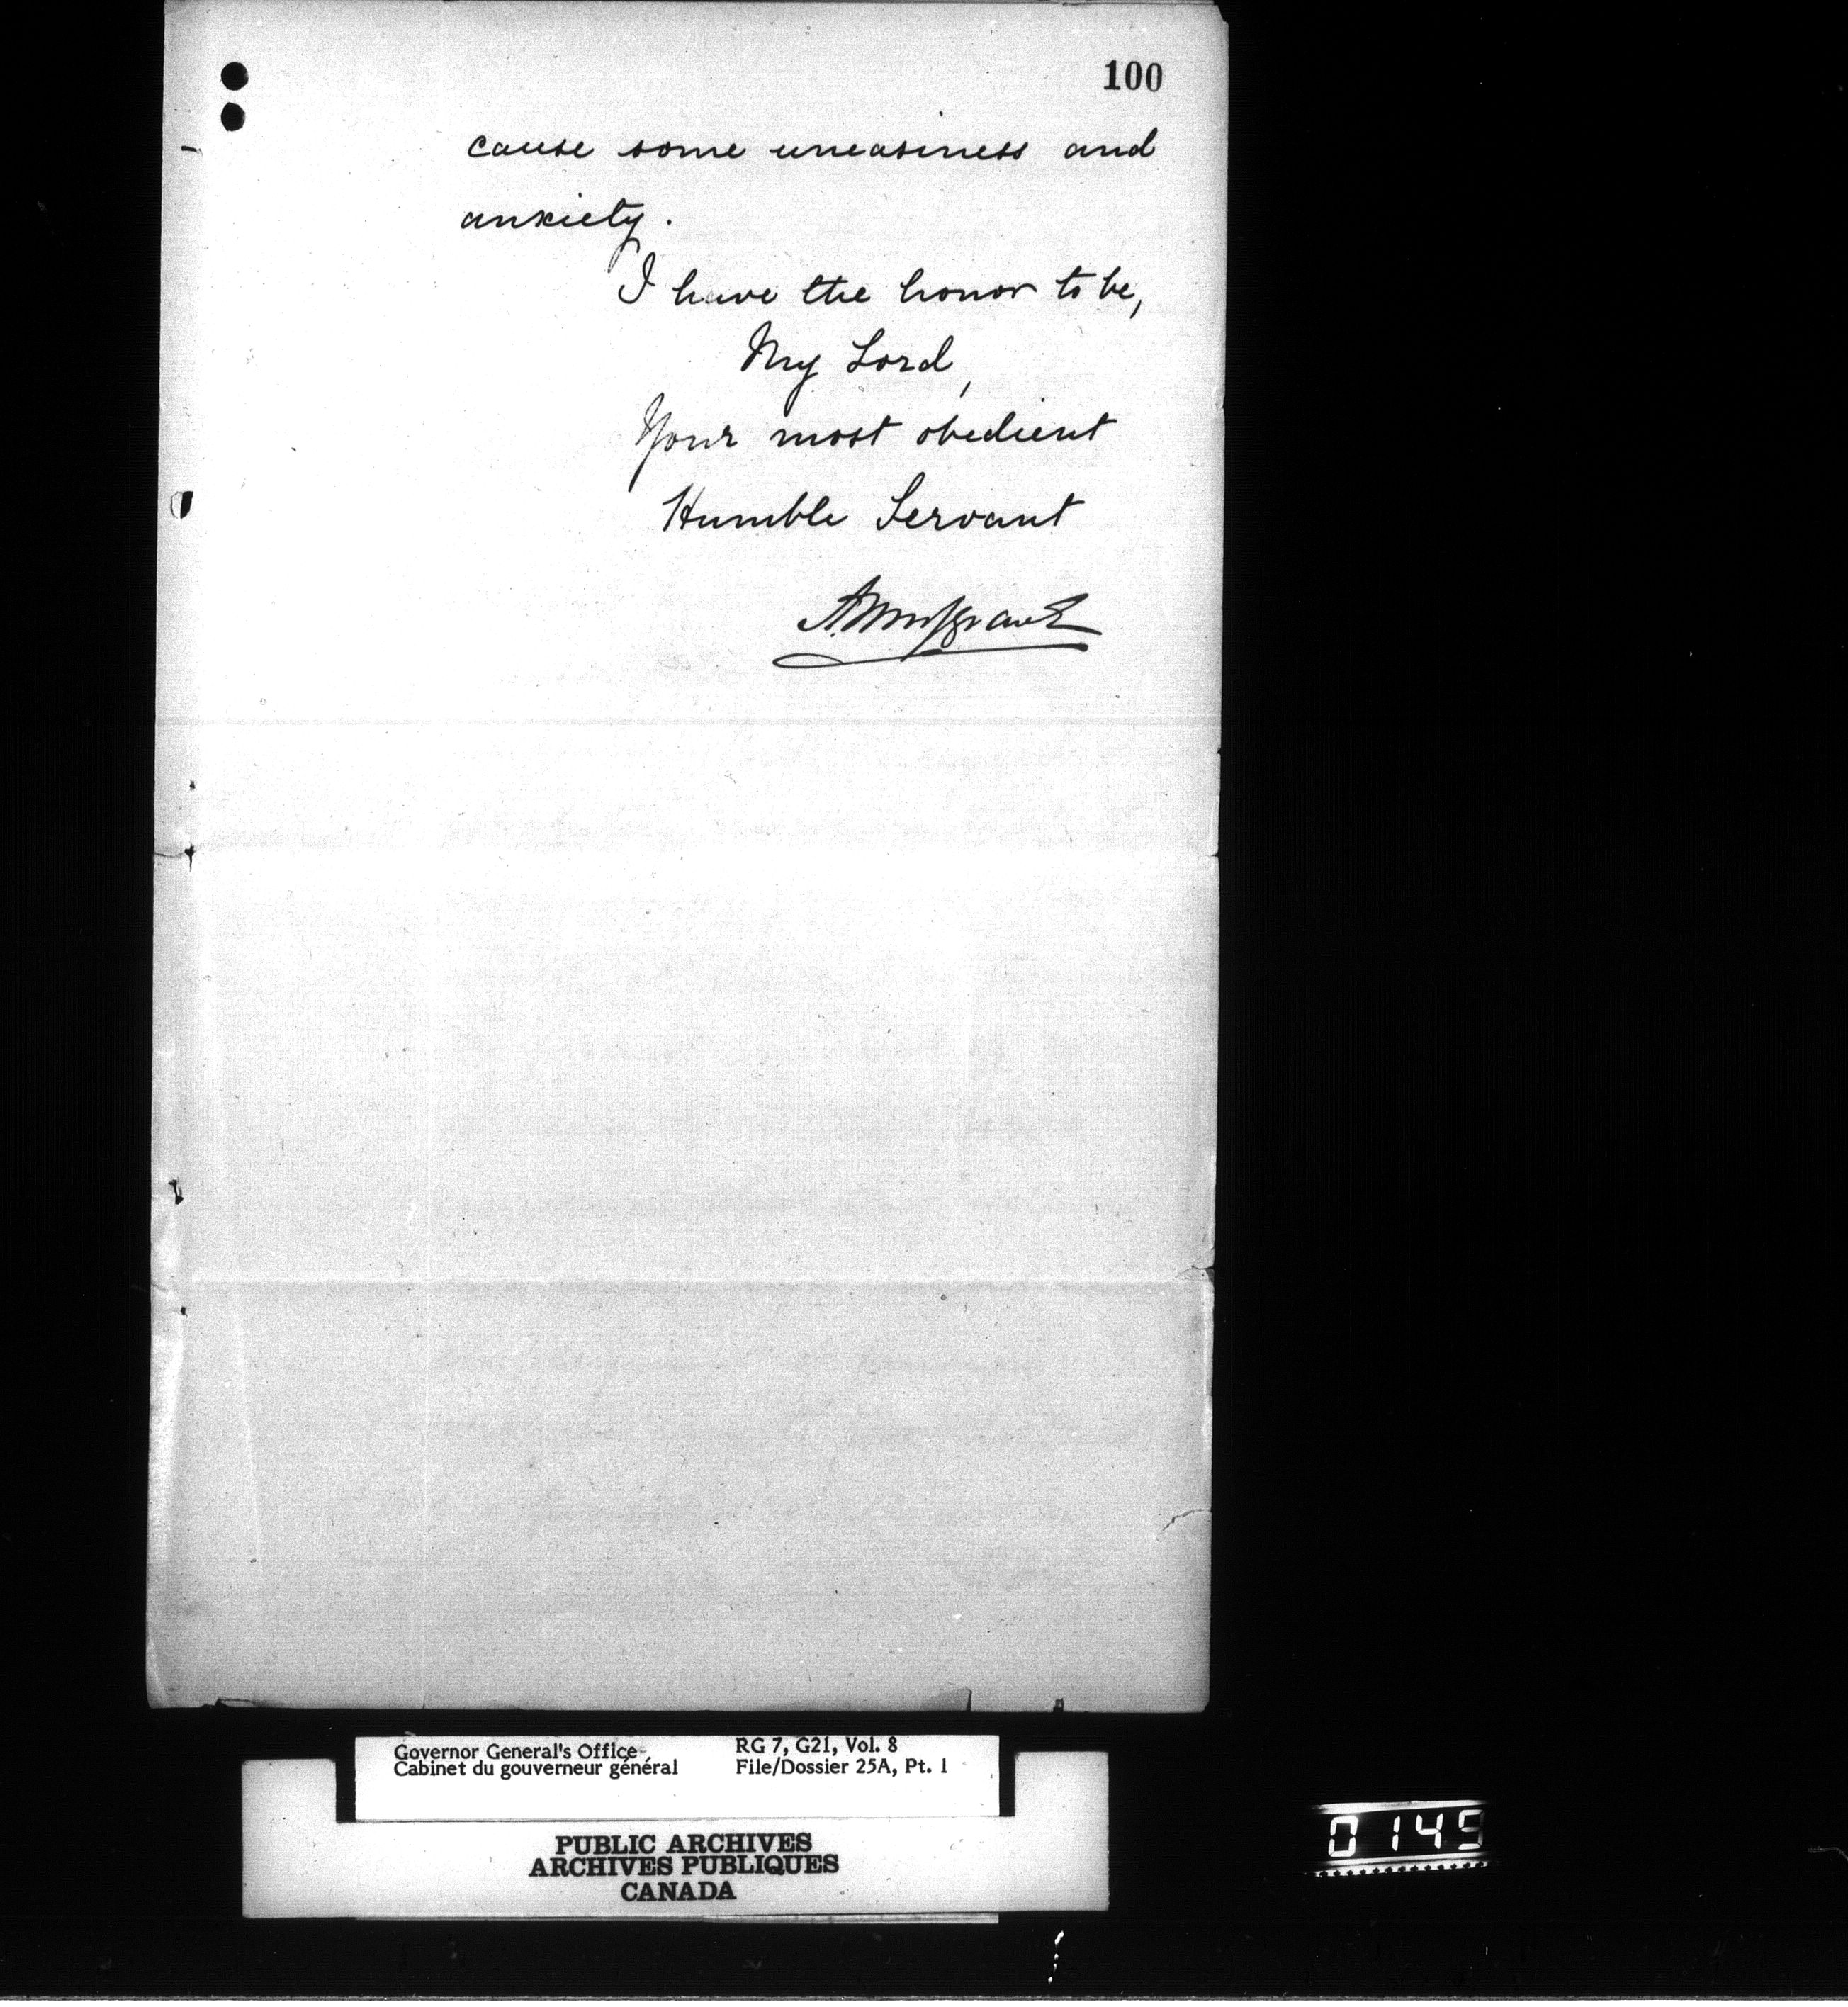 100
cause some uneasiness and
anxiety.
I have the honor to be,
My Lord,
Your most obedient
Humble Servant
A. Musgrave
Governor General's Office
Cabinet du gouverneur général
RG 7, G21, Vol. 8
File/Dossier 25A, Pt. 1
PUBLIC ARCHIVES
ARCHIVES PUBLIQUES
CANADA
0145